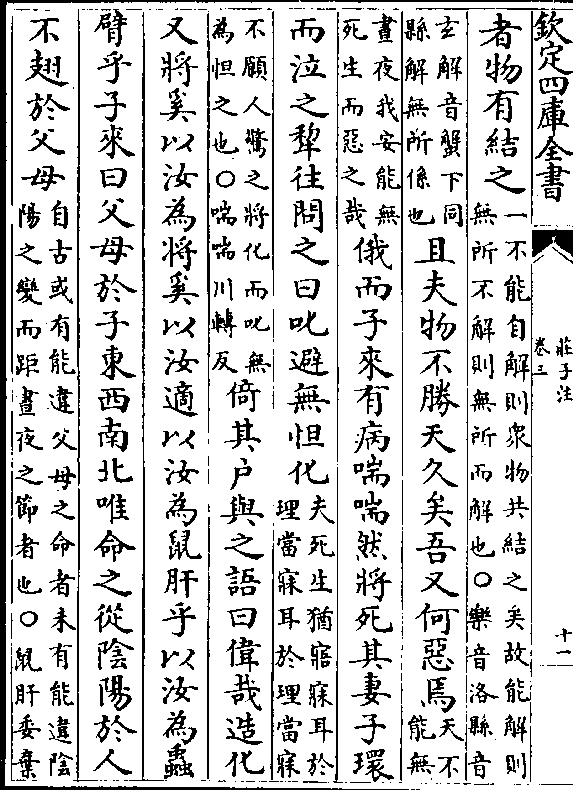 欽定四庫全書
莊子注
卷三
十一
者物有結之
一不能自解則衆物共結之矣故能解則
無所不解則無所而解也○樂音洛縣音
玄解音蟹下同
縣解無所係也
且夫物不勝天久矣吾又何惡焉
天不
能無
晝夜我安能無
死生而惡之哉
俄而子來有病喘喘然將死其妻子環
而泣之犂往問之曰叱避無怛化
夫死生猶寤寐耳於
理當寐耳於理當寐
不願人驚之將化而叱無
為怛之也○喘喘川轉反
倚其户與之語曰偉哉造化
又將奚以汝為將奚以汝適以汝為鼠肝乎以汝為蟲
臂乎子來曰父母於子東西南北唯命之從陰陽於人
不翅於父母
自古或有能違父母之命者未有能違陰
陽之變而距晝夜之節者也○鼠肝委棄